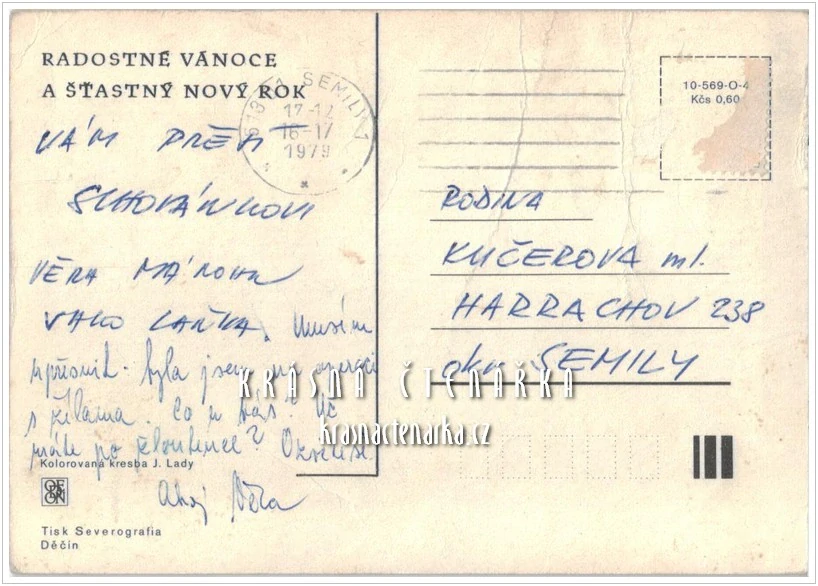 RADOSTNÉ VÁNOCE
A ŠŤASTNÝ NOVÝ ROK
513 01 SEMILY 1
17-12
16-17
1979
10-569-O-4
Kčs 0,60
VÁM PŘEJÍ
VĚRA
Musím
upřesnit. byla jsem na operaci
s žilama. Co u vás? Už
máte po žloutence?
Ahoj Věra
RODINA
KUČEROVA ml.
HARRACHOV 238
okr. SEMILY
KRÁSNÁ ČTENÁŘKA
krasnactenarka.cz
Kolorovaná kresba J. Lady
ODEON
Tisk Severografia
Děčín